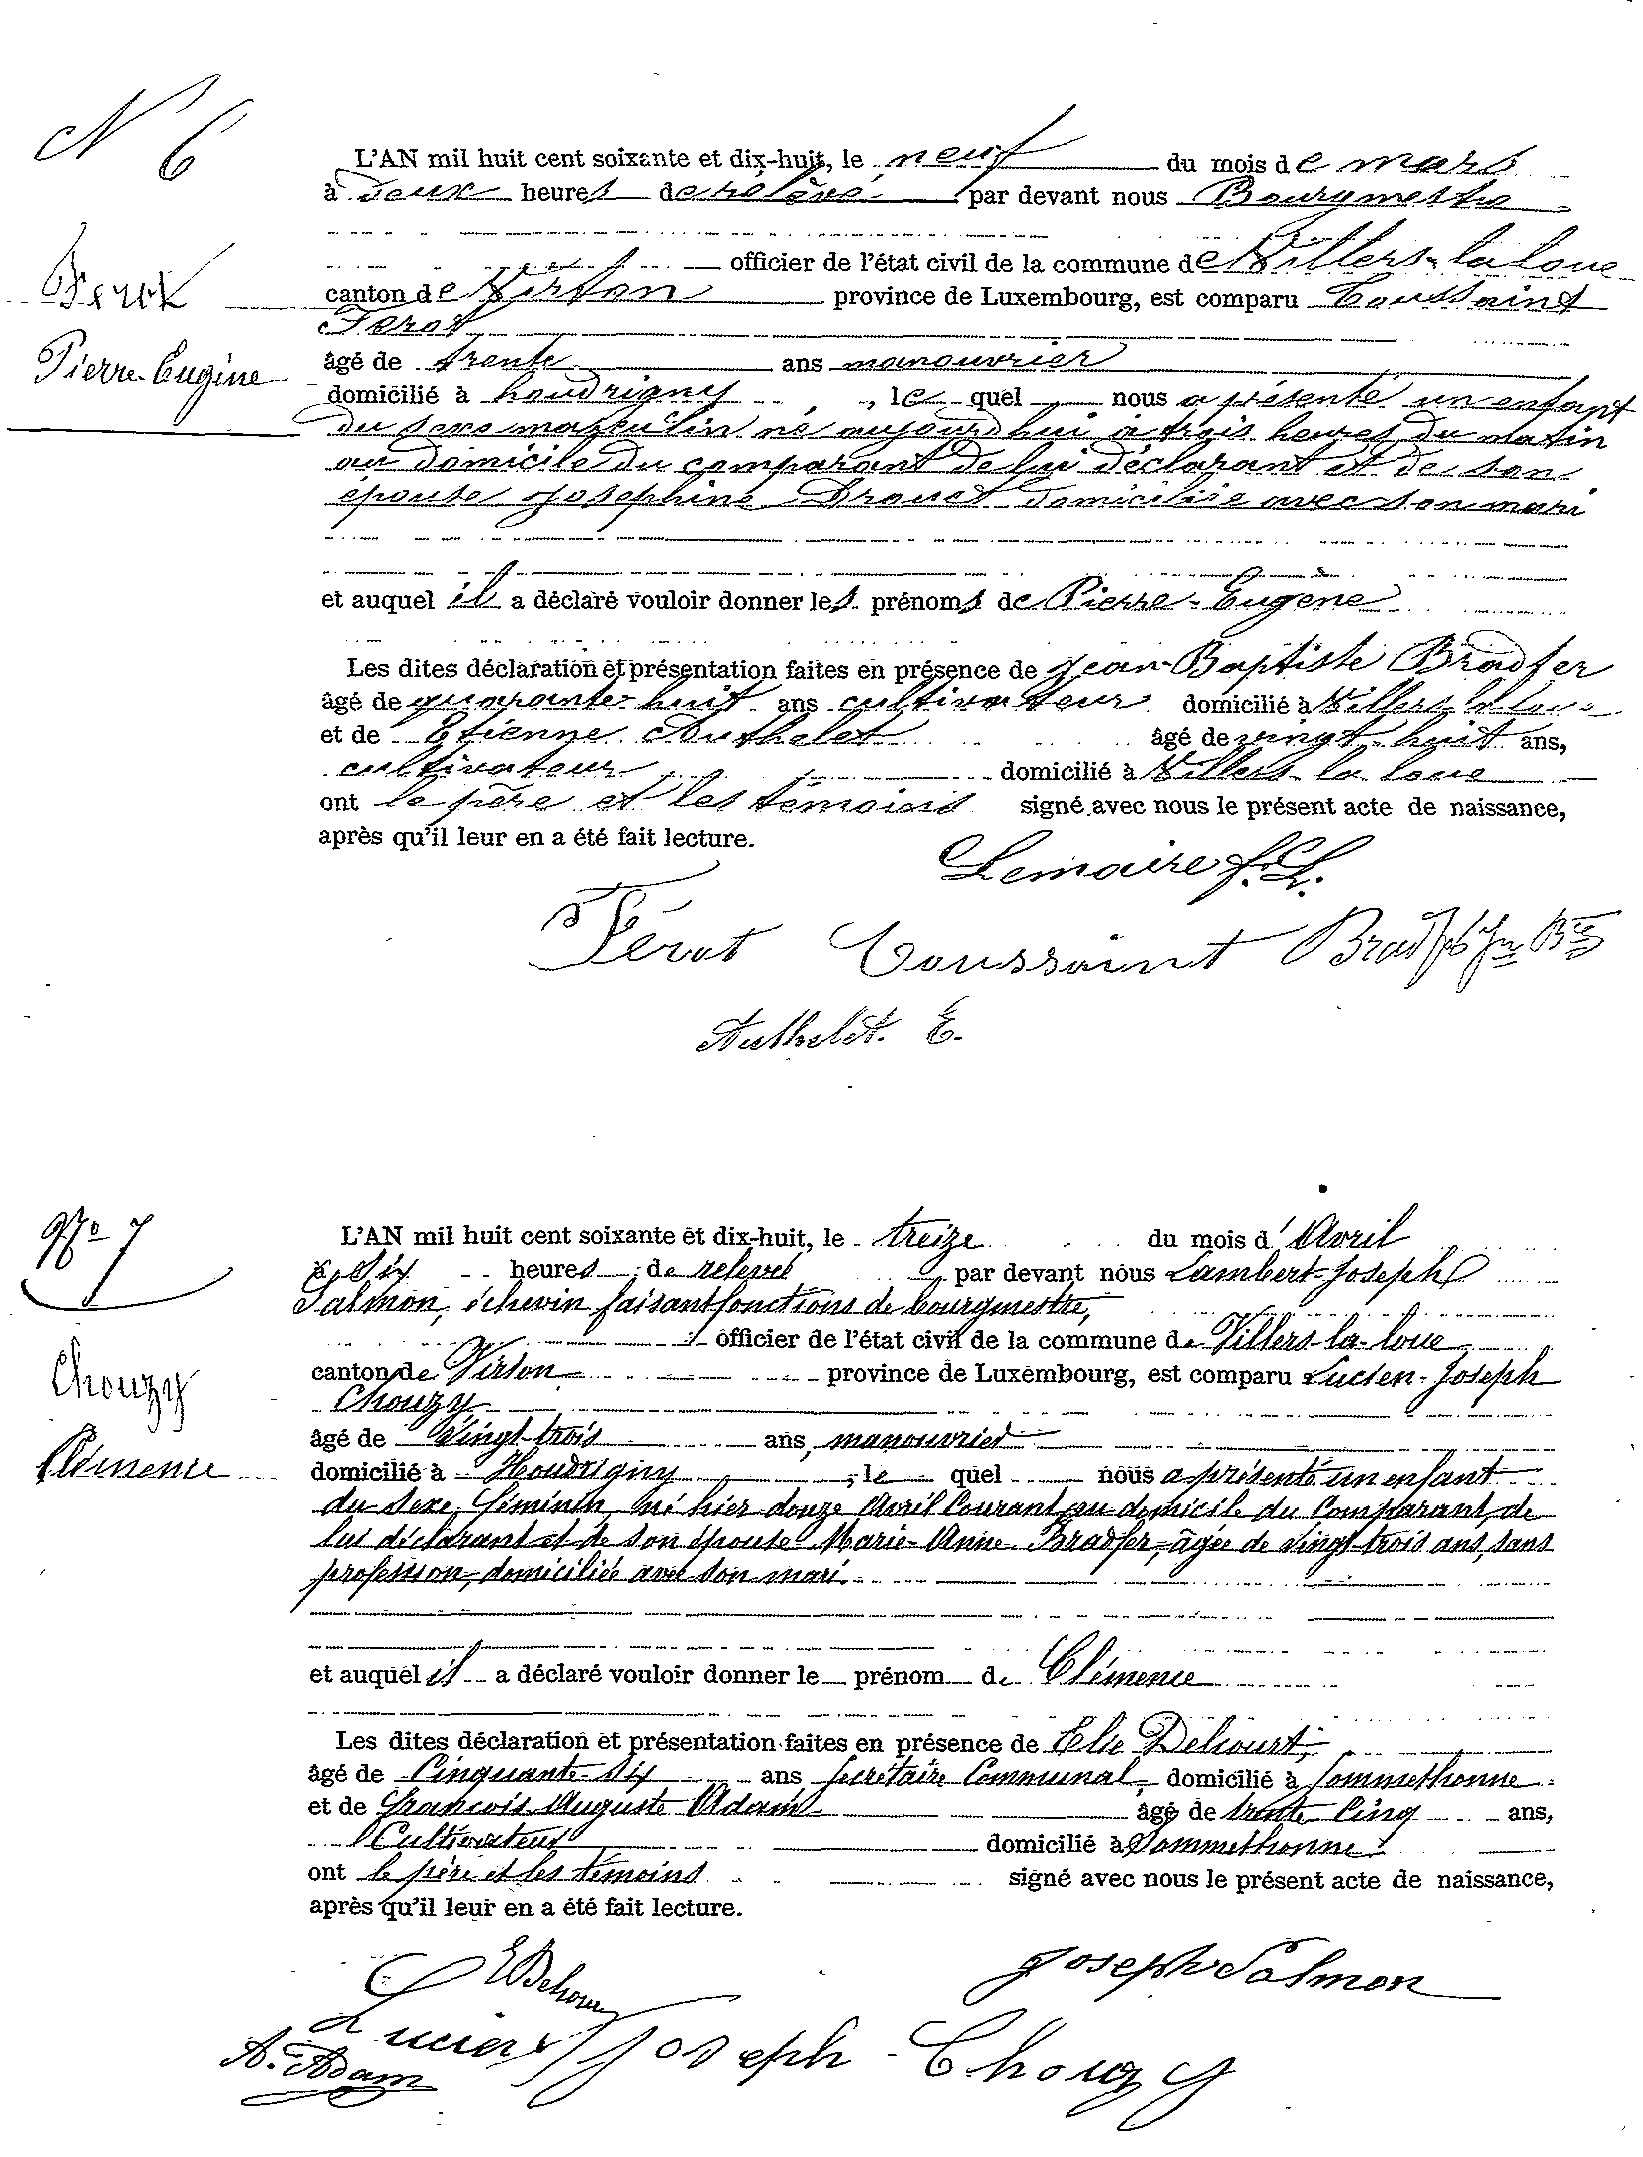 N 6
Ferot
Pierre-Eugène
L'AN mil huit cent soixante et dix-huit, le neuf du mois de mars
à deux heures de relevé par devant nous Bourgmestre
officier de l'état civil de la commune de Villers-la-loue
canton de Virton province de Luxembourg, est comparu Toussaint
Ferot
âgé de trente ans manouvrier
domicilié à houdrigny, le quel nous a présenté un enfant
du sexe masculin né aujourd'hui à trois heures du matin
au domicile du comparant de lui déclarant et de son
épouse Joséphine Drouet domiciliée avec son mari
et auquel il a déclaré vouloir donner les prénoms de Pierre-Eugène
Les dites déclaration et présentation faites en présence de Jean-Baptiste Bradfer
âgé de quarante-huit ans cultivateur domicilié à Villers-la-loue
et de Etienne Authelet âgé de vingt-huit ans,
cultivateur domicilié à Villers-la-loue
ont le père et les témoins signé avec nous le présent acte de naissance,
après qu'il leur en a été fait lecture.
Lemaire f. L.
Férot Toussaint Bradfer Jn Bte
Authelet. E.
No 7
Chouzy
Clémence
L'AN mil huit cent soixante et dix-huit, le treize du mois d'Avril
à six heures de relevée par devant nous Lambert-Joseph
Salmon, échevin faisant fonctions de bourgmestre,
officier de l'état civil de la commune de Villers-la-loue
canton de Virton province de Luxembourg, est comparu Lucien-Joseph
Chouzy
âgé de Vingt-trois ans, manouvrier
domicilié à Houdrigny, le quel nous a présenté un enfant
du sexe féminin, né hier douze Avril Courant, au domicile du Comparant, de
lui déclarant et de son épouse Marie-Anne Bradfer, âgée de vingt-trois ans, sans
profession, domiciliée avec son mari.
et auquel il a déclaré vouloir donner le prénom de Clémence
Les dites déclaration et présentation faites en présence de Elie Dehourt,
âgé de Cinquante-six ans, Secrétaire Communal, domicilié à Sommethonne
et de François Auguste Adam âgé de trente Cinq ans,
Cultivateur domicilié à Sommethonne
ont le père et les témoins signé avec nous le présent acte de naissance,
après qu'il leur en a été fait lecture.
E Dehour Joseph Salmon
Lucien Joseph Chouzy
A. Adam